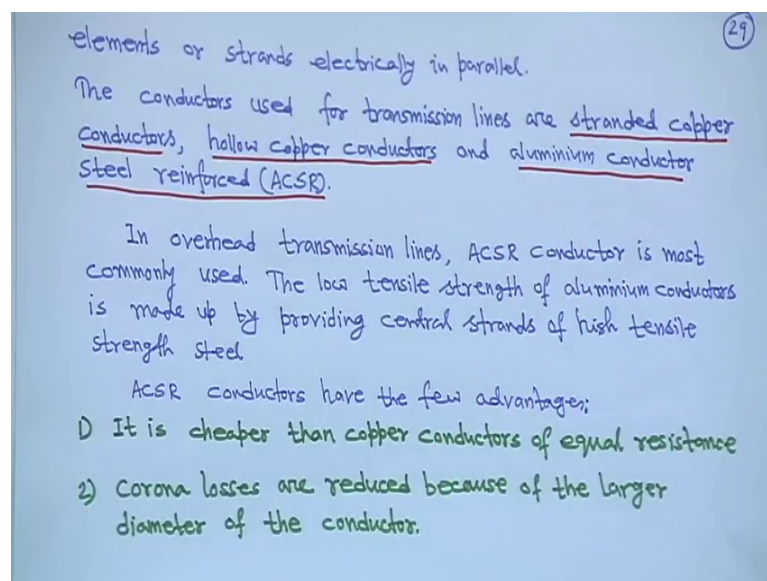 29
elements or strands electrically in parallel.
The conductors used for transmission lines are stranded copper
conductors, hollow copper conductors and aluminium conductor
Steel reinforced (ACSR).
In overhead transmission lines, ACSR conductor is most
commonly used. The low tensile strength of aluminium conductors
is made up by providing central strands of high tensile
strength steel.
ACSR conductors have the few advantages;
1) It is cheaper than copper conductors of equal resistance
2) Corona losses are reduced because of the larger
diameter of the conductor.